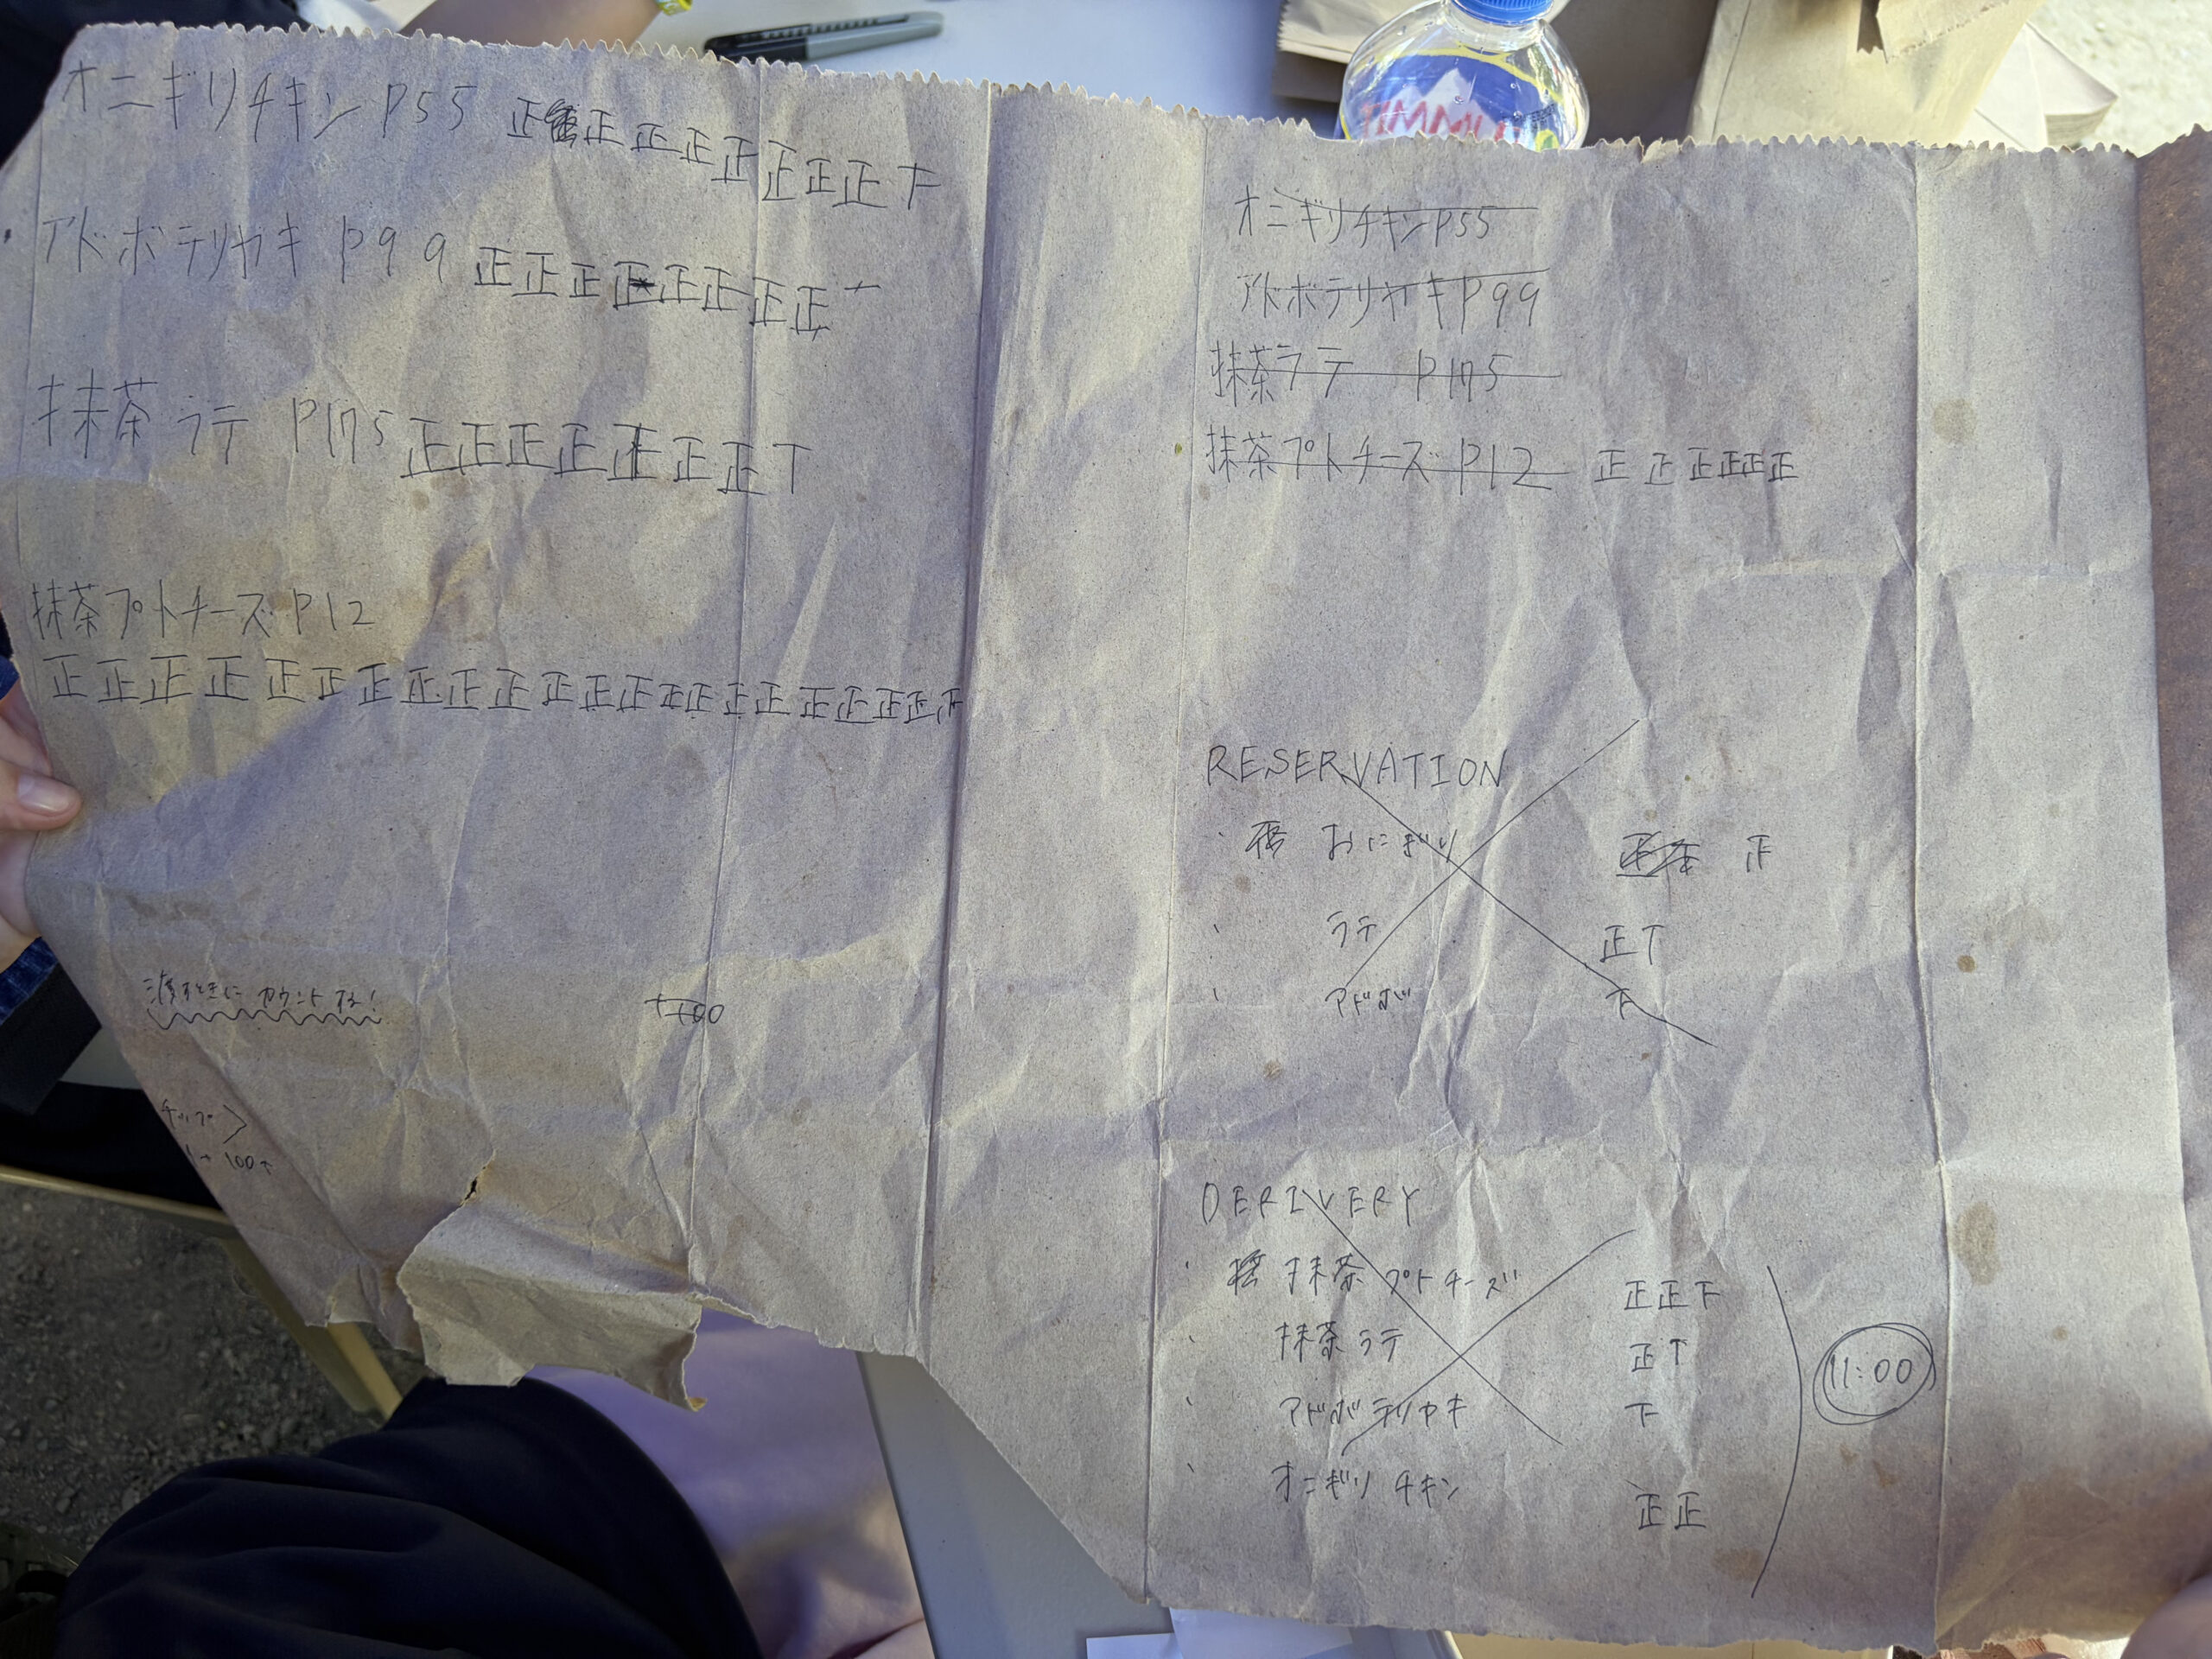 オニギリチキン P55 正正正正正正正正下
アドボテリヤキ P99 正正正正正正正正一
抹茶ラテ P175 正正正正正正正丅
抹茶プトチーズ P12
正正正正正正正正正正正正正正正正正正正正正正
渡すときに カウントする!
チップ
100
オニギリチキン P55
アドボテリヤキ P99
抹茶ラテ P175
抹茶プトチーズ P12 正正正正正正
RESERVATION
・ おにぎり 正
・ ラテ 正丅
・ アドボ 下
DERIVERY
・ 抹茶 プトチーズ 正正下
・ 抹茶ラテ 正丅
・ アドボテリヤキ 下
・ オニギリチキン 正正
11:00